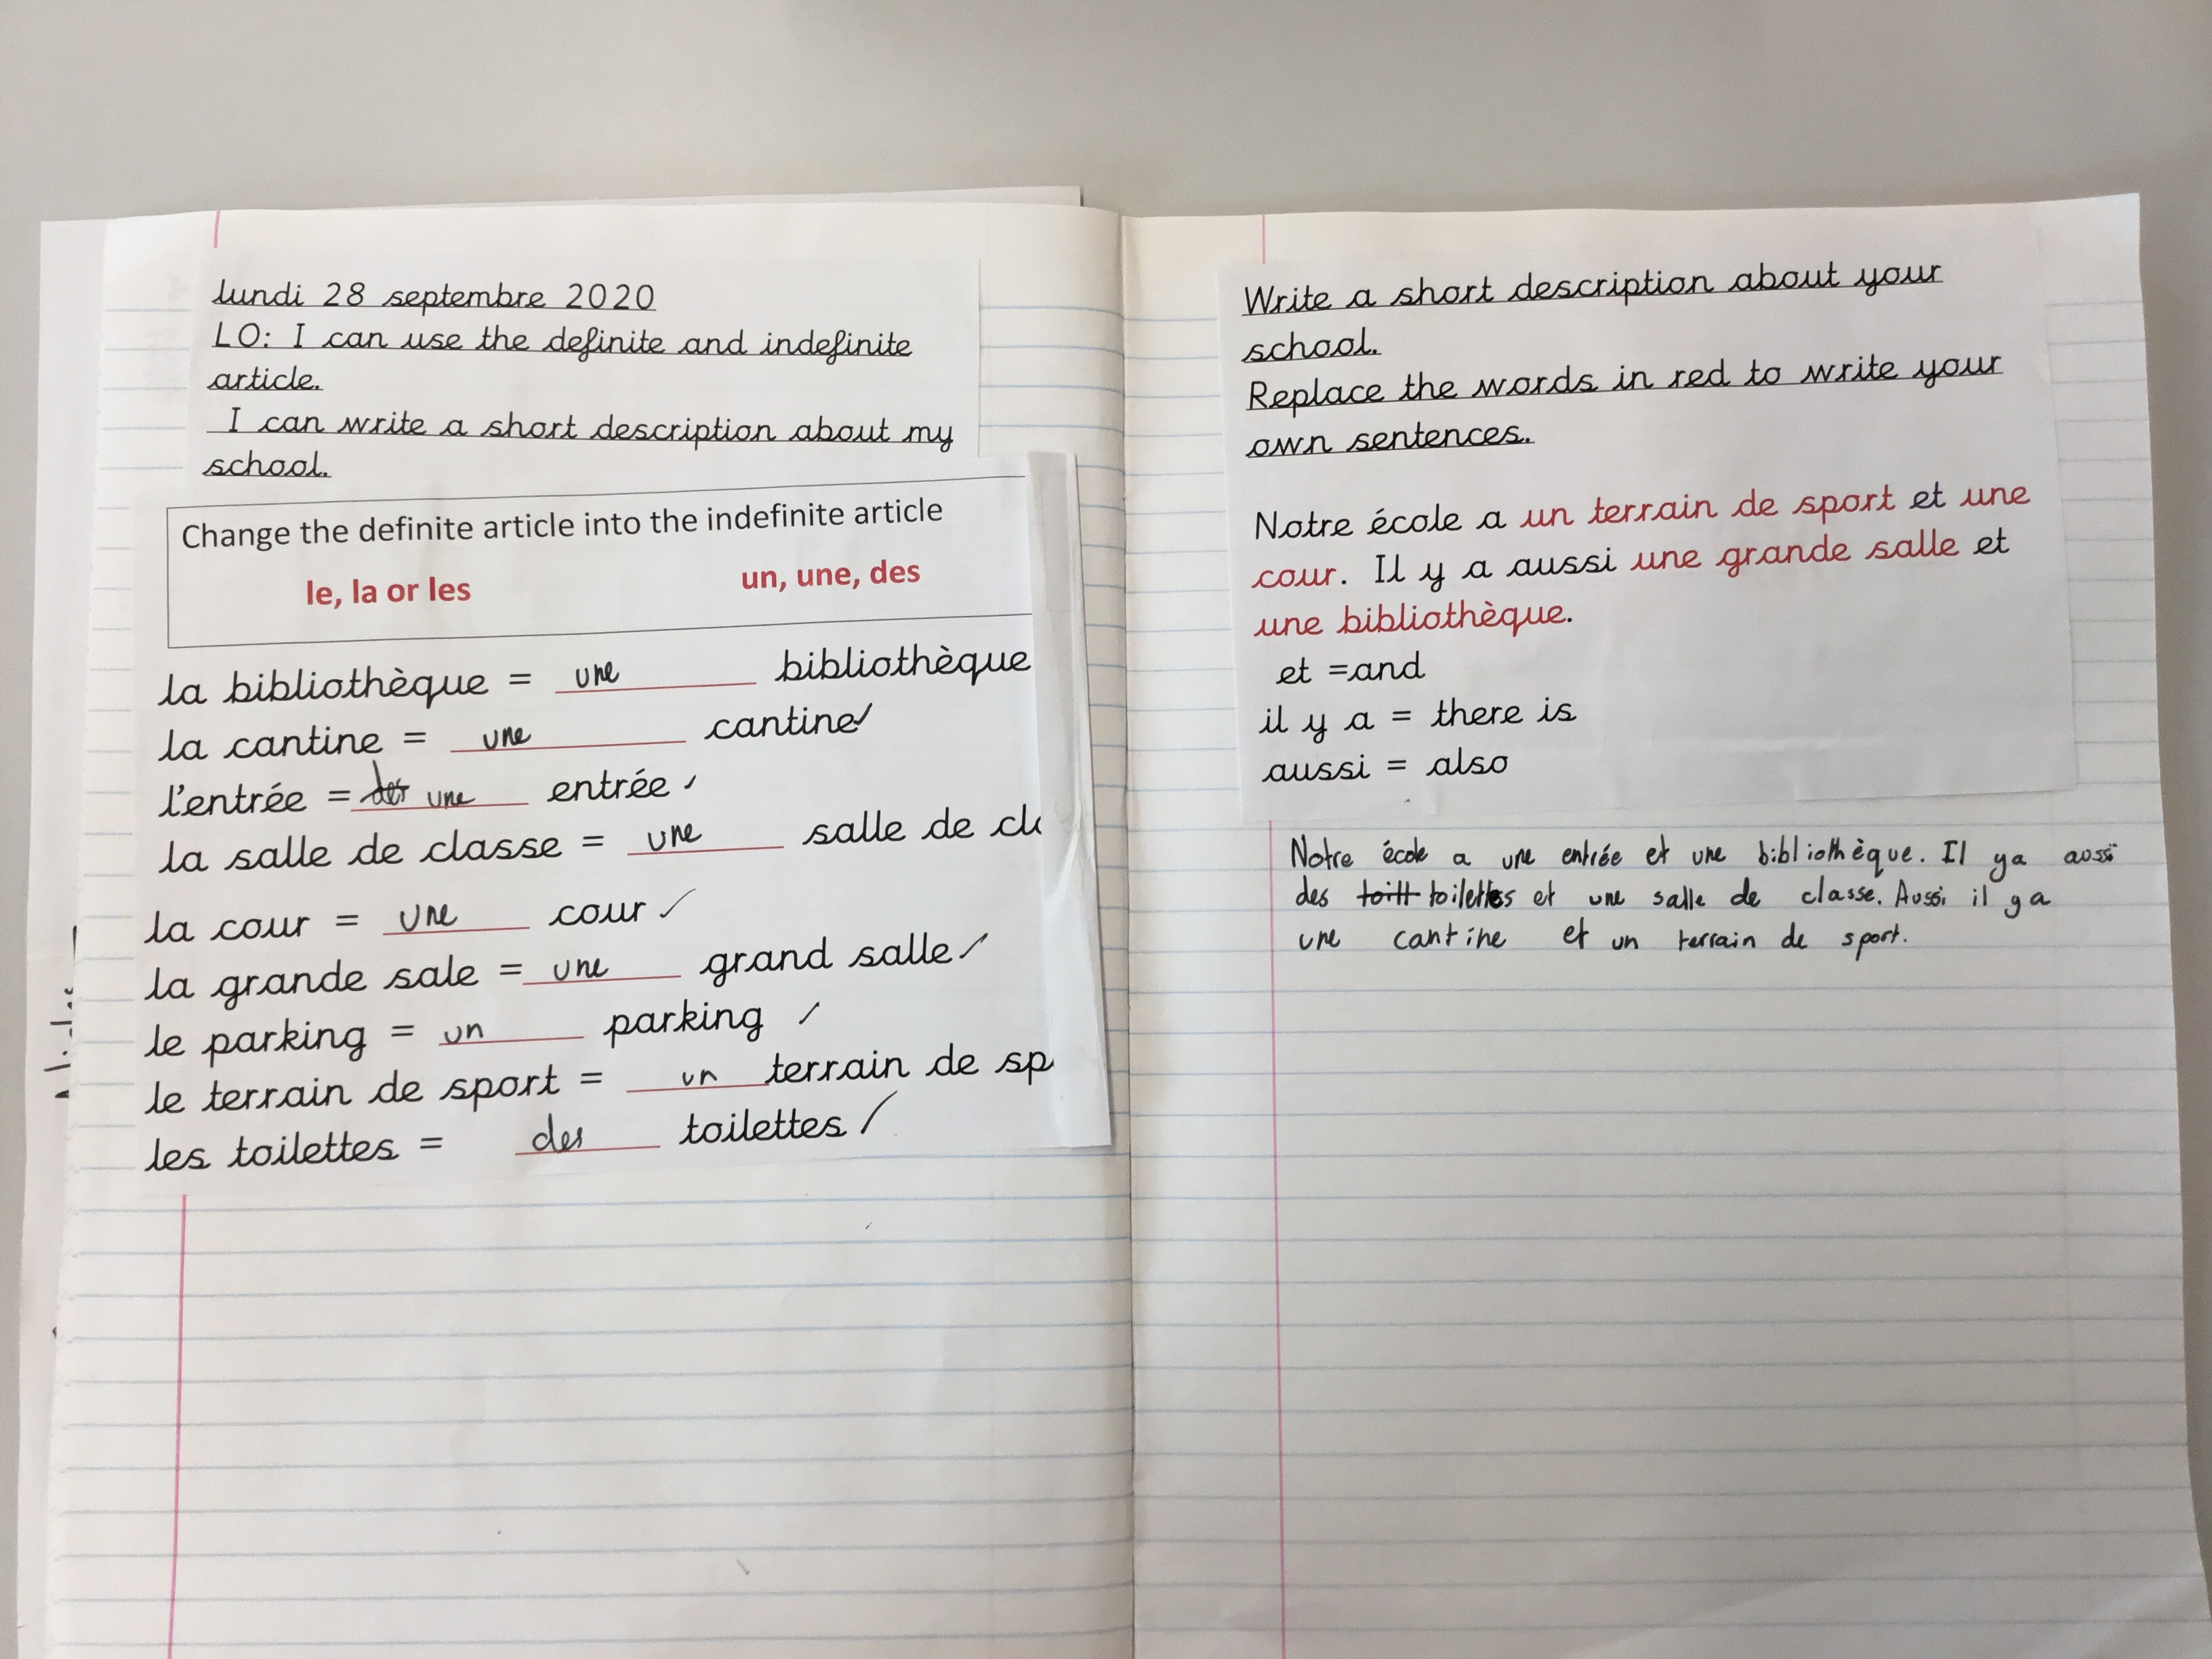 lundi 28 septembre 2020
LO: I can use the definite and indefinite
article.
I can write a short description about my
school.
Change the definite article into the indefinite article
le, la or les un, une, des
la bibliothèque = une bibliothèque
la cantine = une cantine
l'entrée = des une entrée
la salle de classe = une salle de cl
la cour = une cour
la grande sale = une grand salle
le parking = un parking
le terrain de sport = un terrain de sp
les toilettes = des toilettes
Write a short description about your
school.
Replace the words in red to write your
own sentences.
Notre école a un terrain de sport et une
cour. Il y a aussi une grande salle et
une bibliothèque.
et =and
il y a = there is
aussi = also
Notre école a une entrée et une bibliothèque. Il ya aussi
des toitt toilettes et une salle de classe. Aussi il ya
une cantine et un terrain de sport.